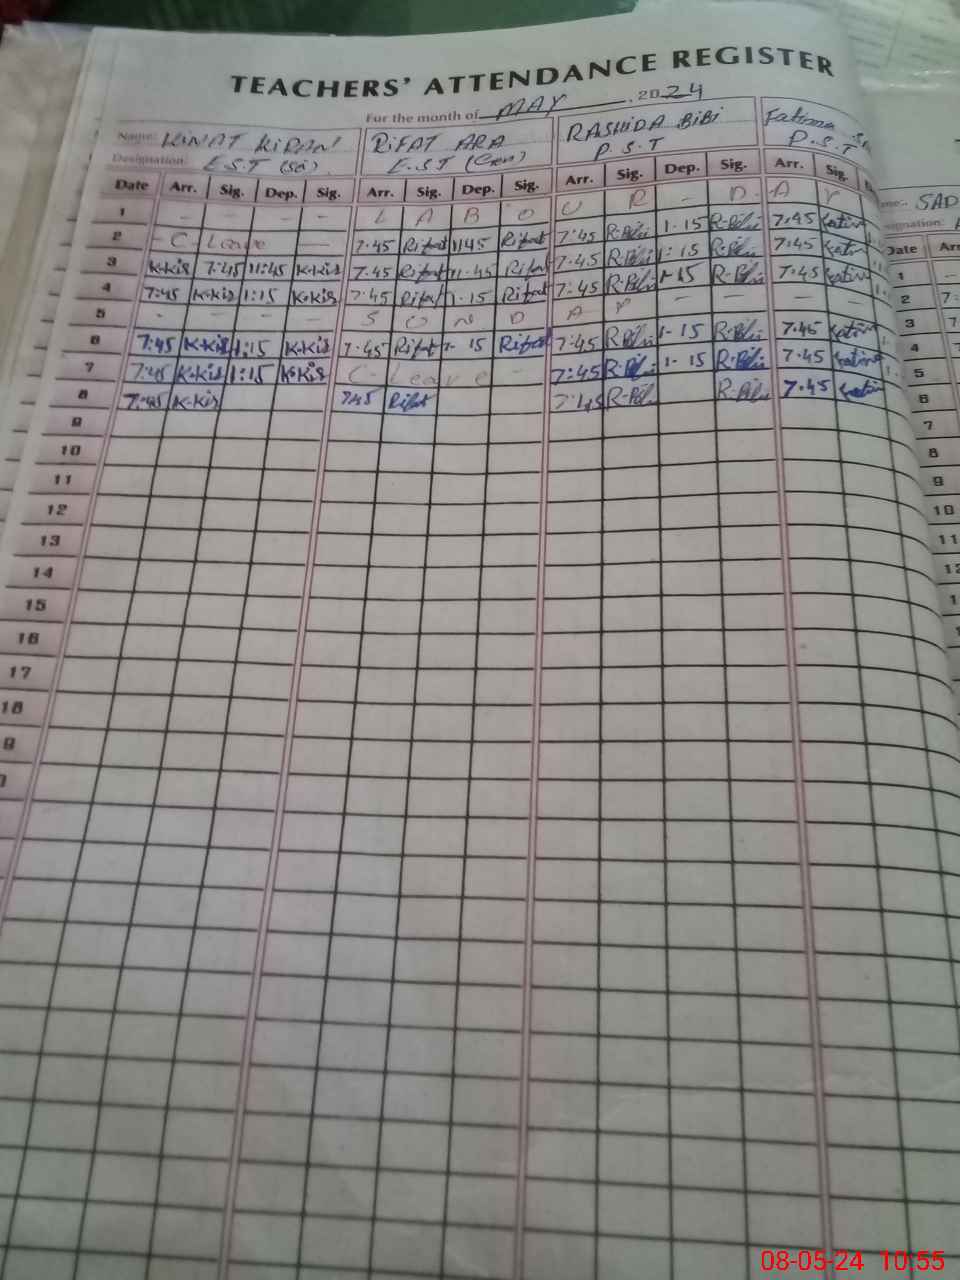 TEACHERS' ATTENDANCE REGISTER
For the month of MAY, 2024
Name: KINAT KIRAN RIFAT ARA RASHIDA BIBI Fatima
Designation: E.S.T (Sci) E.S.T (Gen) P.S.T P.S.T
Date Arr. Sig. Dep. Sig. Arr. Sig. Dep. Sig. Arr. Sig. Dep. Sig. Arr. Sig.
1 - - - - L A B O U R - D A Y
2 - C-Leave - 7.45 Rifat 11:45 Rifat 7:45 R.Bibi 1-15 R.Bibi 7.45
3 K.Kir 7:45 11:45 K.Kir 7.45 Rifat 11.45 Rifat 7.45 R.Bibi 1:15 R.Bibi 7.45
4 7:45 K.Kir 1:15 K.Kir 7.45 Rifat 1.15 Rifat 7:45 R.Bibi 1-15 R.Bibi 7.45
5 - - - - S U N D A Y - - - -
6 7:45 K.Kir 1:15 K.Kir 7.45 Rifat 1-15 Rifat 7:45 R.Bibi 1-15 R.Bibi 7.45
7 7:45 K.Kir 1:15 K.Kir C-Leave - 7:45 R.Bibi 1-15 R.Bibi 7.45
8 7:45 K.Kir 7:45 Rifat 7:45 R.Bibi R.Bibi 7.45
9
10
11
12
13
14
15
16
17
18
SAD
Date Arr
1 -
2 7:
3
4
5
6
7
8
9
10
11
08-05-24 10:55